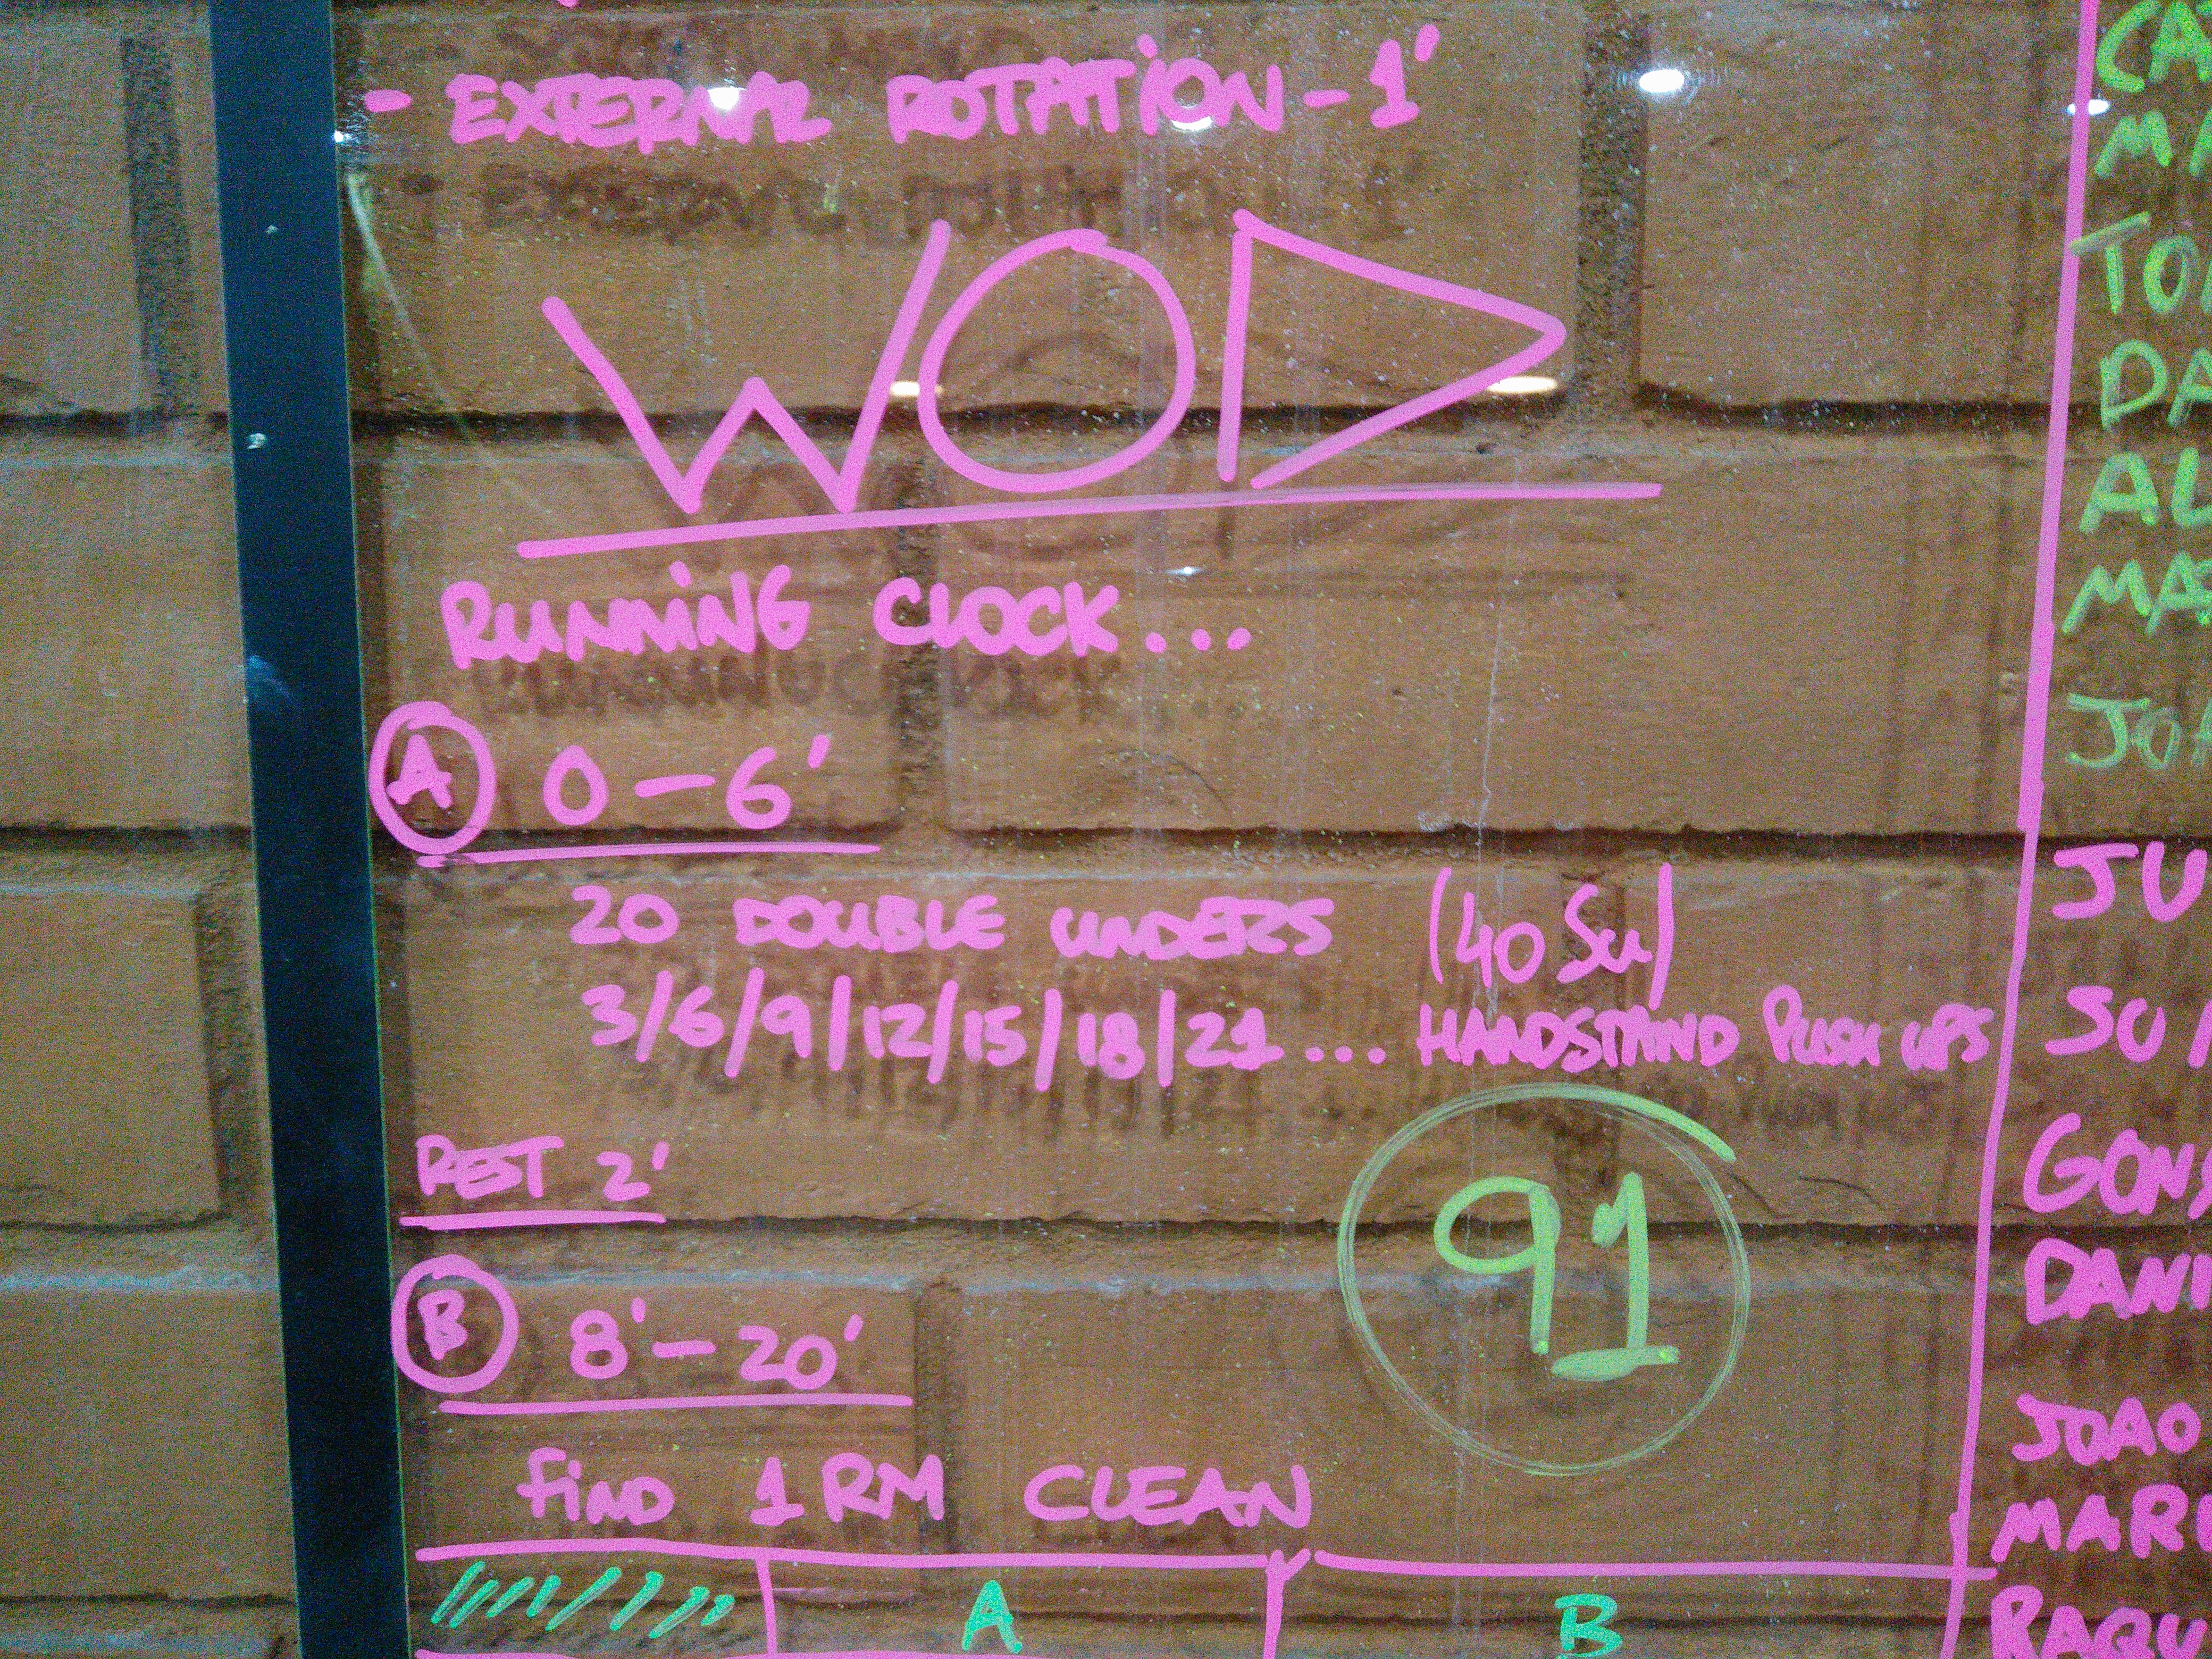 - EXTERNAL ROTATION - 1'
WOD
RUNNING CLOCK...
A 0 - 6'
20 DOUBLE UNDERS (40 Su)
3/6/9/12/15/18/21... HANDSTAND PUSH UPS
REST 2'
91
B 8' - 20'
FIND 1 RM CLEAN
A B
TO
PA
AL
JU
DANI
JOAO
RAQU